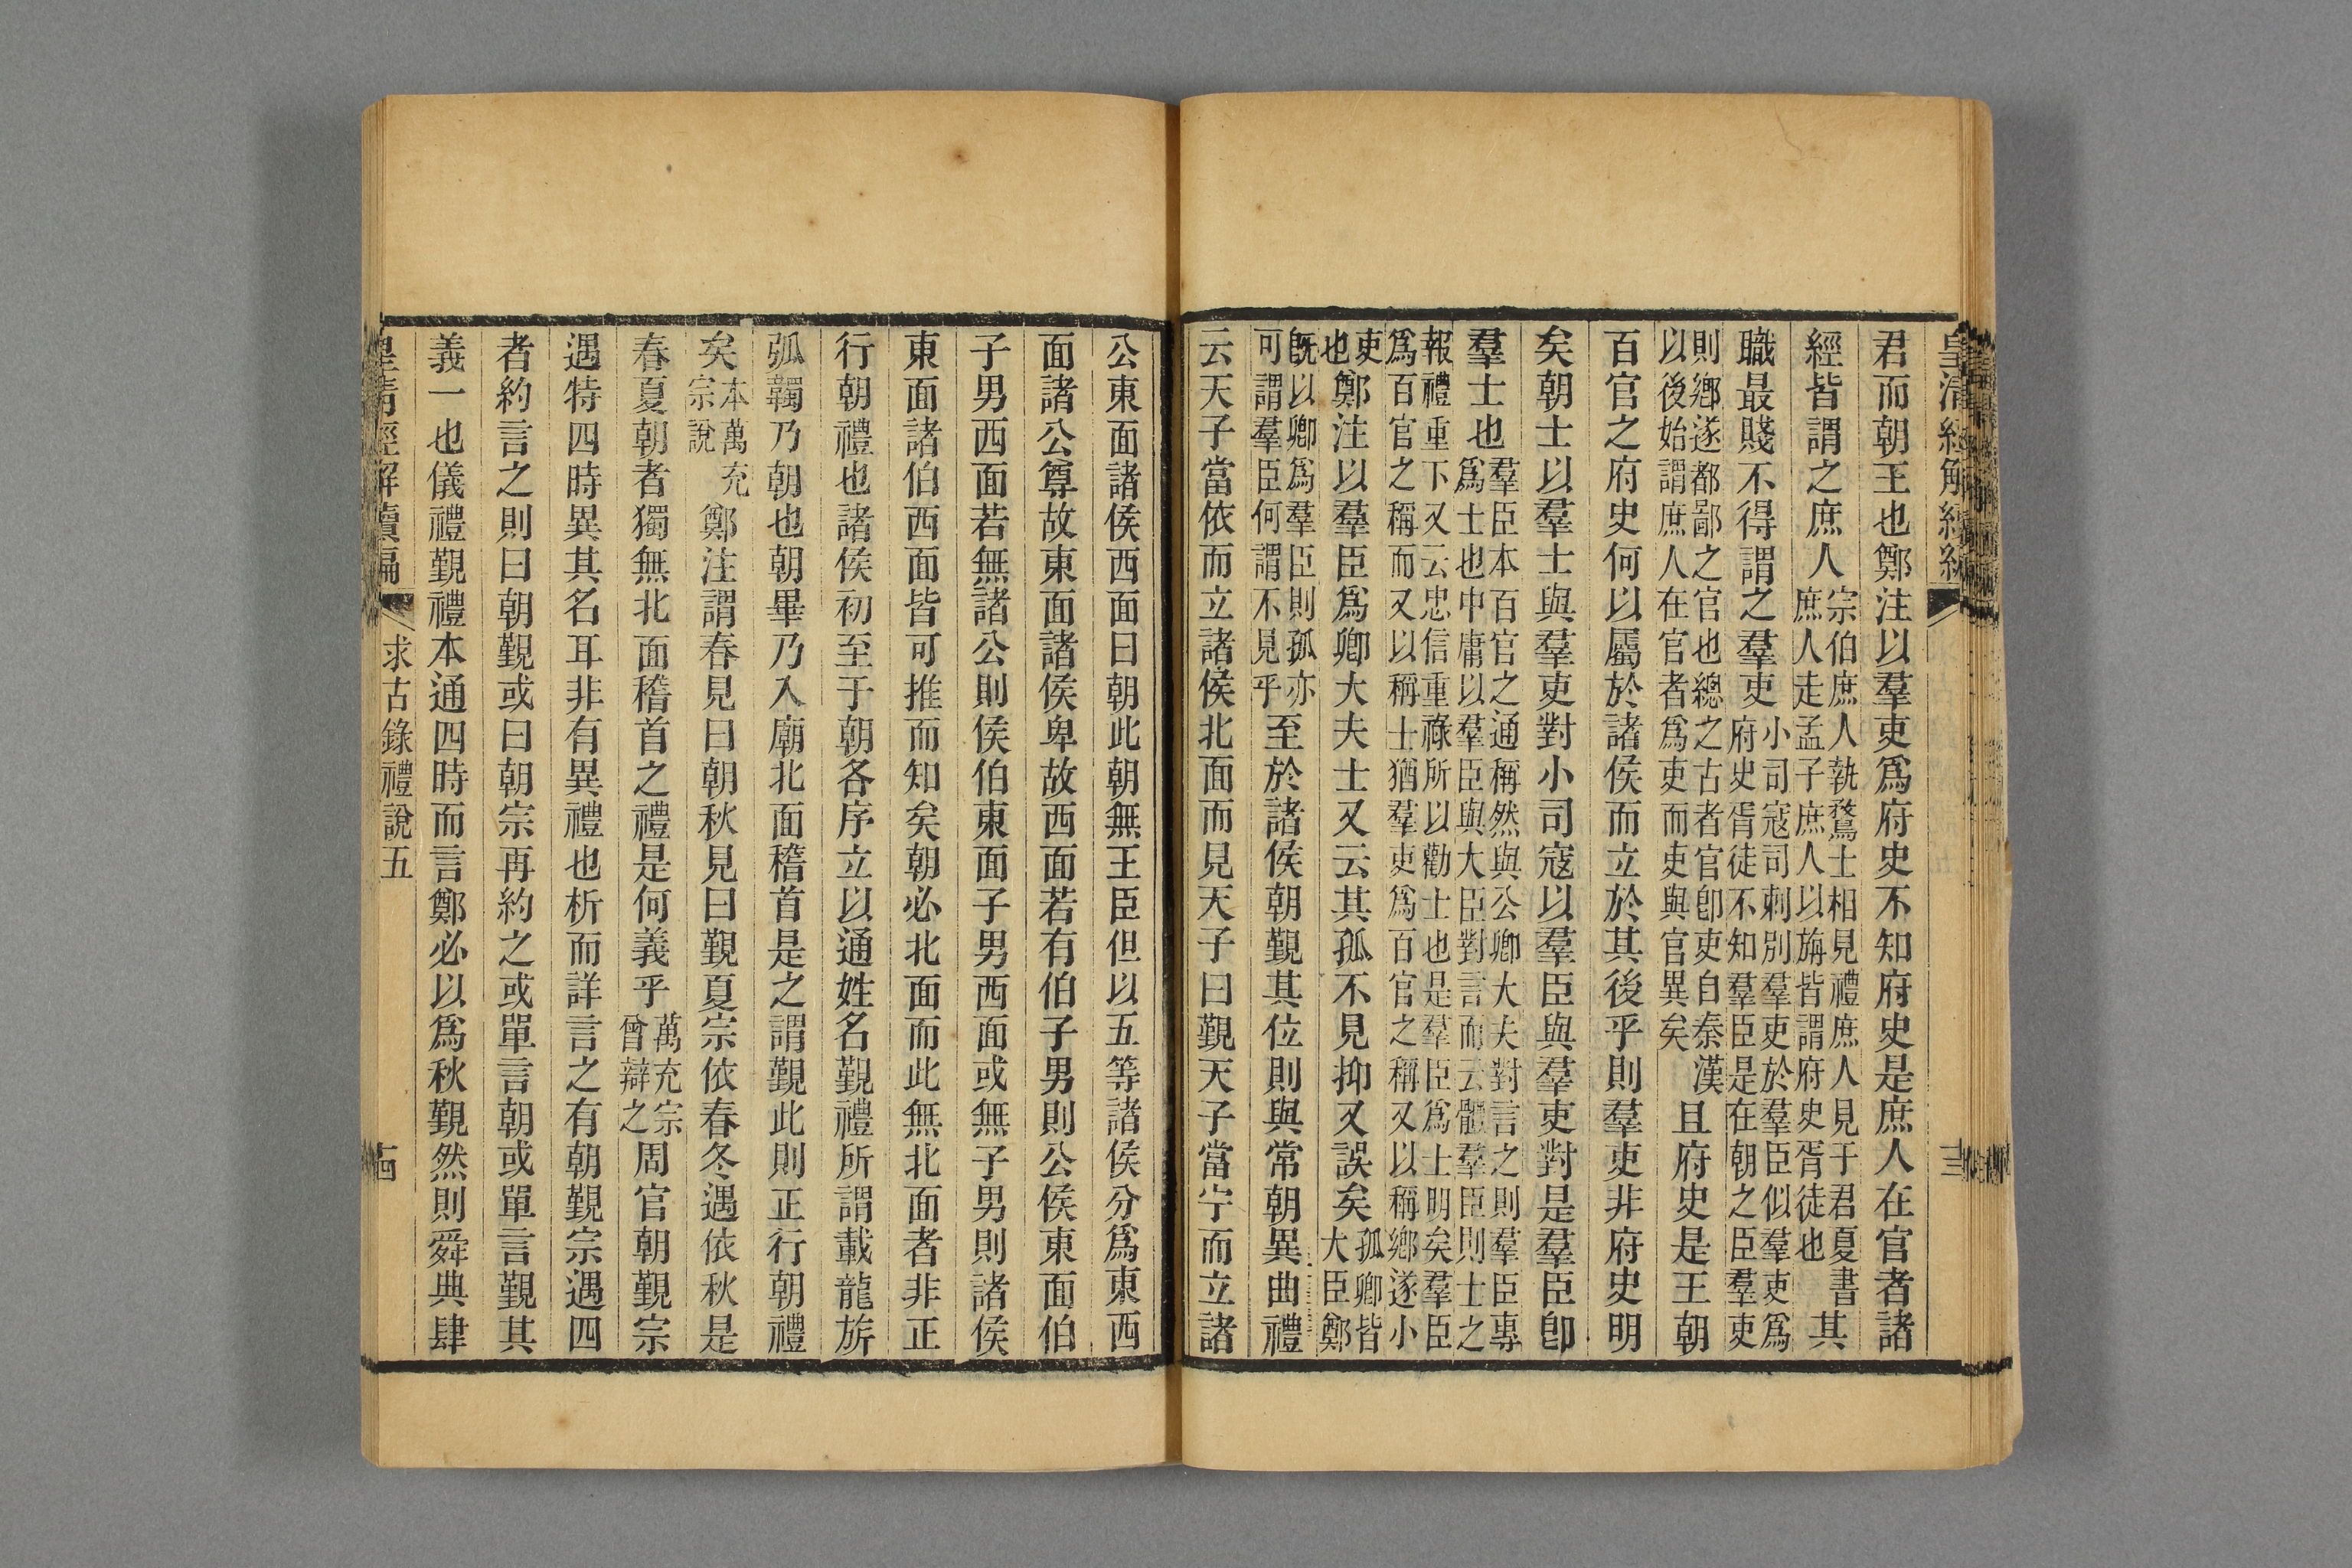 皇清經解續編
十三
君而朝王也鄭注以羣吏爲府史不知府史是庶人在官者諸
經皆謂之庶人宗伯庶人執鶩士相見禮庶人見于君夏書庶人走孟子庶人以旃皆謂府史胥徒也其
職最賤不得謂之羣吏小司寇司刺別羣吏於羣臣似羣吏爲府史胥徒不知羣臣是在朝之臣羣吏
則鄕遂都鄙之官也總之古者官卽吏自秦漢以後始謂庶人在官者爲吏而吏與官異矣且府史是王朝
百官之府史何以屬於諸侯而立於其後乎則羣吏非府史明
矣朝士以羣士與羣吏對小司寇以羣臣與羣吏對是羣臣卽
羣士也羣臣本百官之通稱然與公卿大夫對言之則羣臣專爲士也中庸以羣臣與大臣對言而云體羣臣則士之
報禮重下又云忠信重祿所以勸士也是羣臣爲士明矣羣臣爲百官之稱而又以稱士猶羣吏爲百官之稱又以稱鄕遂小
吏也鄭注以羣臣爲卿大夫士又云其孤不見抑又誤矣孤卿皆大臣鄭
既以卿爲羣臣則孤亦可謂羣臣何謂不見乎至於諸侯朝覲其位則與常朝異曲禮
云天子當依而立諸侯北面而見天子曰覲天子當宁而立諸
公東面諸侯西面曰朝此朝無王臣但以五等諸侯分爲東西
面諸公尊故東面諸侯卑故西面若有伯子男則公侯東面伯
子男西面若無諸公則侯伯東面子男西面或無子男則諸侯
東面諸伯西面皆可推而知矣朝必北面而此無北面者非正
行朝禮也諸侯初至于朝各序立以通姓名覲禮所謂載龍旂
弧韣乃朝也朝畢乃入廟北面稽首是之謂覲此則正行朝禮
矣本萬充宗說鄭注謂春見曰朝秋見曰覲夏宗依春冬遇依秋是
春夏朝者獨無北面稽首之禮是何義乎萬充宗曾辯之周官朝覲宗
遇特四時異其名耳非有異禮也析而詳言之有朝覲宗遇四
者約言之則曰朝覲或曰朝宗再約之或單言朝或單言覲其
義一也儀禮覲禮本通四時而言鄭必以爲秋覲然則舜典肆
皇清經解續編
求古錄禮說五
十四